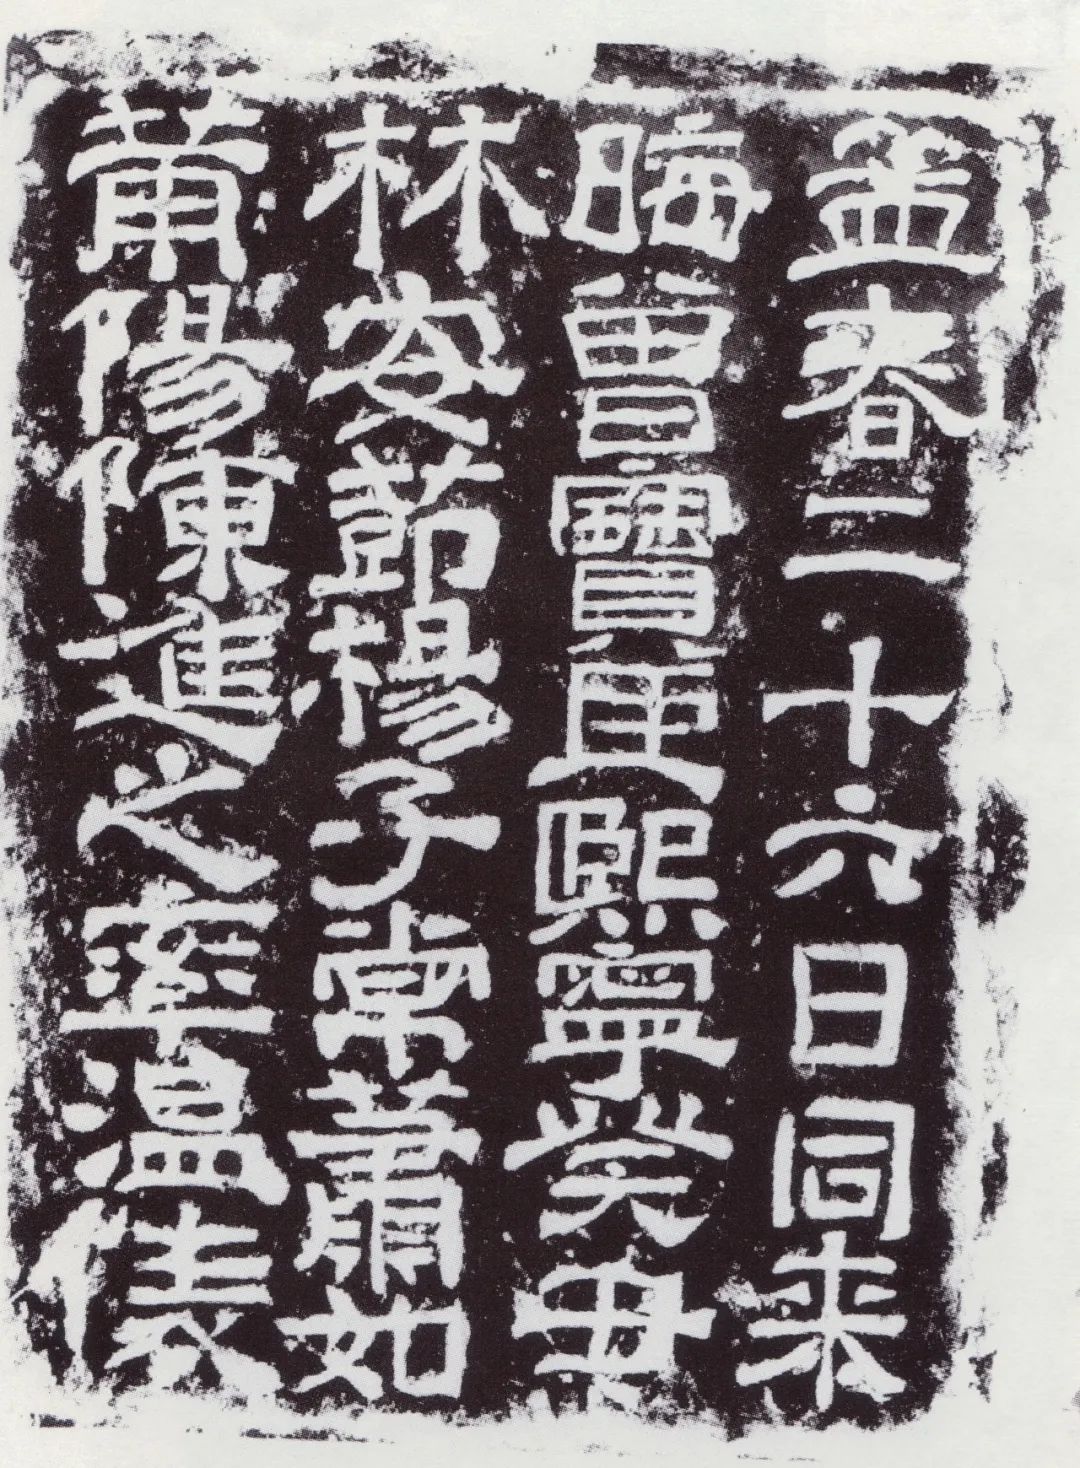 莆陽陳進之率溫陵
林安節楊子常蕭如
晦曾寶臣熙寧癸丑
孟春二十六日同來